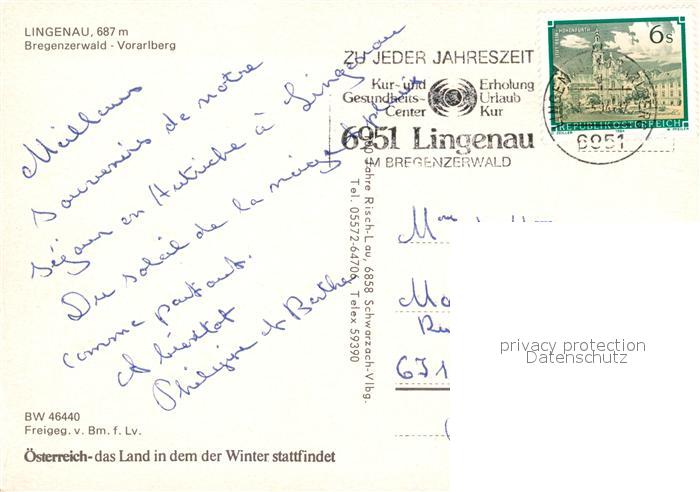 LINGENAU, 687 m
Bregenzerwald - Vorarlberg
Meilleurs
souvenirs de notre
séjour en Autriche à Lingenau
Du soleil de la neige de la pluie
comme partout.
A bientôt
Philippe et Berthe
BW 46440
Freigeg. v. Bm. f. Lv.
Österreich - das Land in dem der Winter stattfindet
ZU JEDER JAHRESZEIT
Kur- und
Gesundheits-
Center
Erholung
Urlaub
Kur
6951 Lingenau
IM BREGENZERWALD
6s
REPUBLIK ÖSTERREICH
6951
Risch-Lau, 6858 Schwarzach-Vlbg.
Tel. 05572-64706, Telex 59390
671
privacy protection
Datenschutz